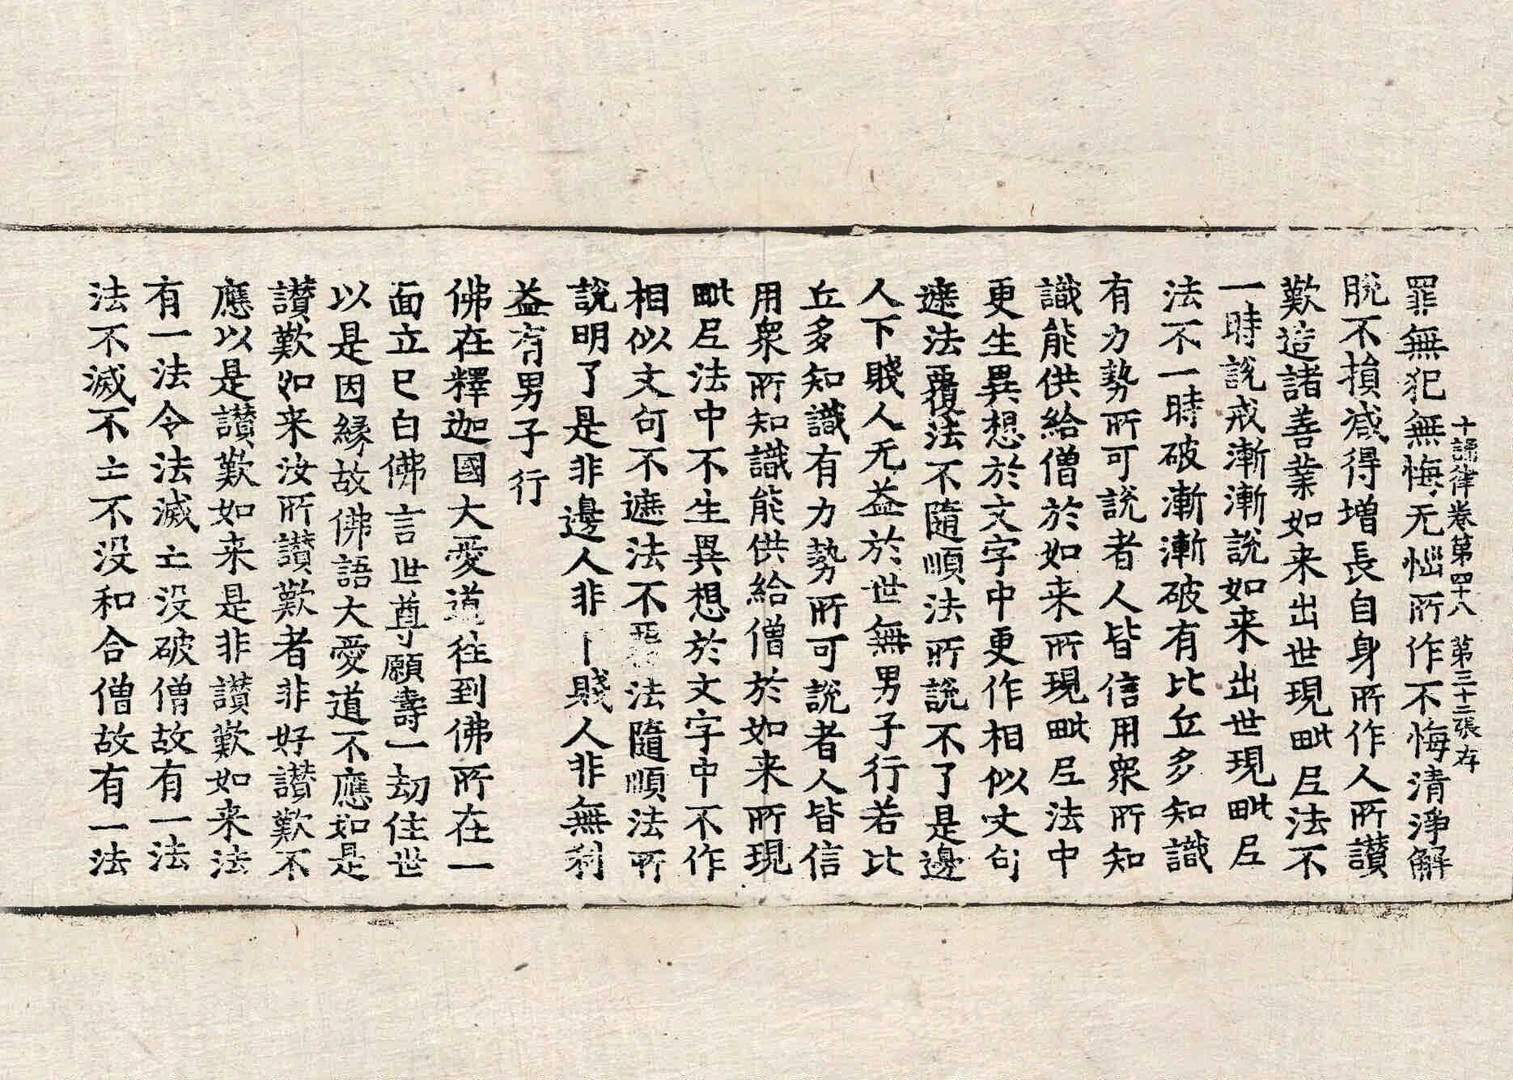 十誦律卷第四十八 第三十二張 存
罪無犯無悔无惱所作不悔清淨解
脫不損減得增長自身所作人所讃
歎造諸善業如来出世現毗尼法不
一時說戒漸漸說如来出世現毗尼
法不一時破漸漸破有比丘多知識
有力勢所可說者人皆信用衆所知
識能供給僧於如来所現毗尼法中
更生異想於文字中更作相似文句
遮法覆法不隨順法所說不了是邊
人下賤人无益於世無男子行若比
丘多知識有力勢所可說者人皆信
用衆所知識能供給僧於如来所現
毗尼法中不生異想於文字中不作
相似文句不遮法不覆法隨順法所
說明了是非邊人非下賤人非無利
益有男子行
佛在釋迦國大愛道往到佛所在一
面立已白佛言世尊願壽一劫住世
以是因縁故佛語大愛道不應如是
讃歎如来汝所讃歎者非好讃歎不
應以是讃歎如来是非讃歎如来法
有一法令法滅亡没破僧故有一法
法不滅不亡不没和合僧故有一法